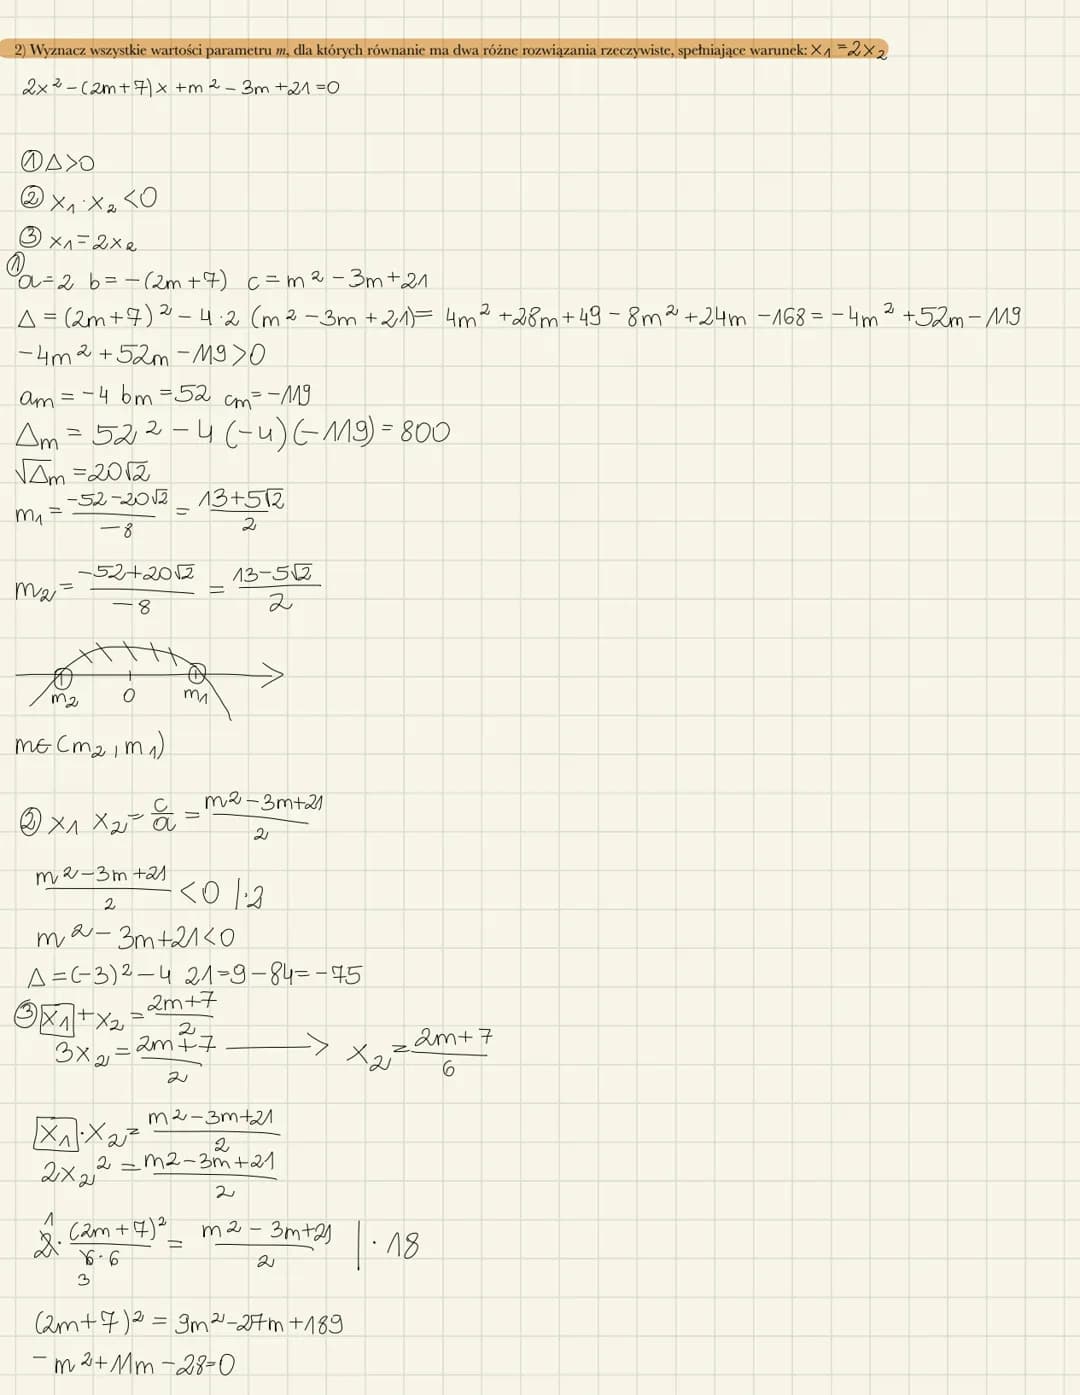 2) Wyznacz wszystkie wartości parametru m, dla których równanie ma dwa różne rozwiązania rzeczywiste, spełniające warunek: x₁ = 2x₂
2x² - (2m+7)x + m² - 3m + 21 = 0
① Δ>0
② x₁ · x₂ < 0
③ x₁ = 2x₂
①
a = 2 b = -(2m+7) c = m² - 3m + 21
Δ = (2m+7)² - 4·2 (m² - 3m + 21) = 4m² + 28m + 49 - 8m² + 24m - 168 = -4m² + 52m - 119
-4m² + 52m - 119 > 0
am = -4 bm = 52 cm = -119
Δm = 52² - 4(-4)(-119) = 800
√Δm = 20√2
m₁ = (-52-20√2)/-8 = (13+5√2)/2
m₂ = (-52+20√2)/-8 = (13-5√2)/2
m₂ 0 m₁
m∈(m₂, m₁)
② x₁ x₂ = c/a = (m²-3m+21)/2
(m²-3m+21)/2 < 0 |·2
m² - 3m + 21 < 0
Δ = (-3)² - 4 21 = 9 - 84 = -75
③ x₁ + x₂ = (2m+7)/2
3x₂ = (2m+7)/2 → x₂ = (2m+7)/6
x₁ · x₂ = (m²-3m+21)/2
2x₂² = (m²-3m+21)/2
1
2 · (2m+7)²/(6·6) = (m²-3m+21)/2 | · 18
3
(2m+7)² = 9m² - 27m + 189
-m² + 11m - 28 = 0